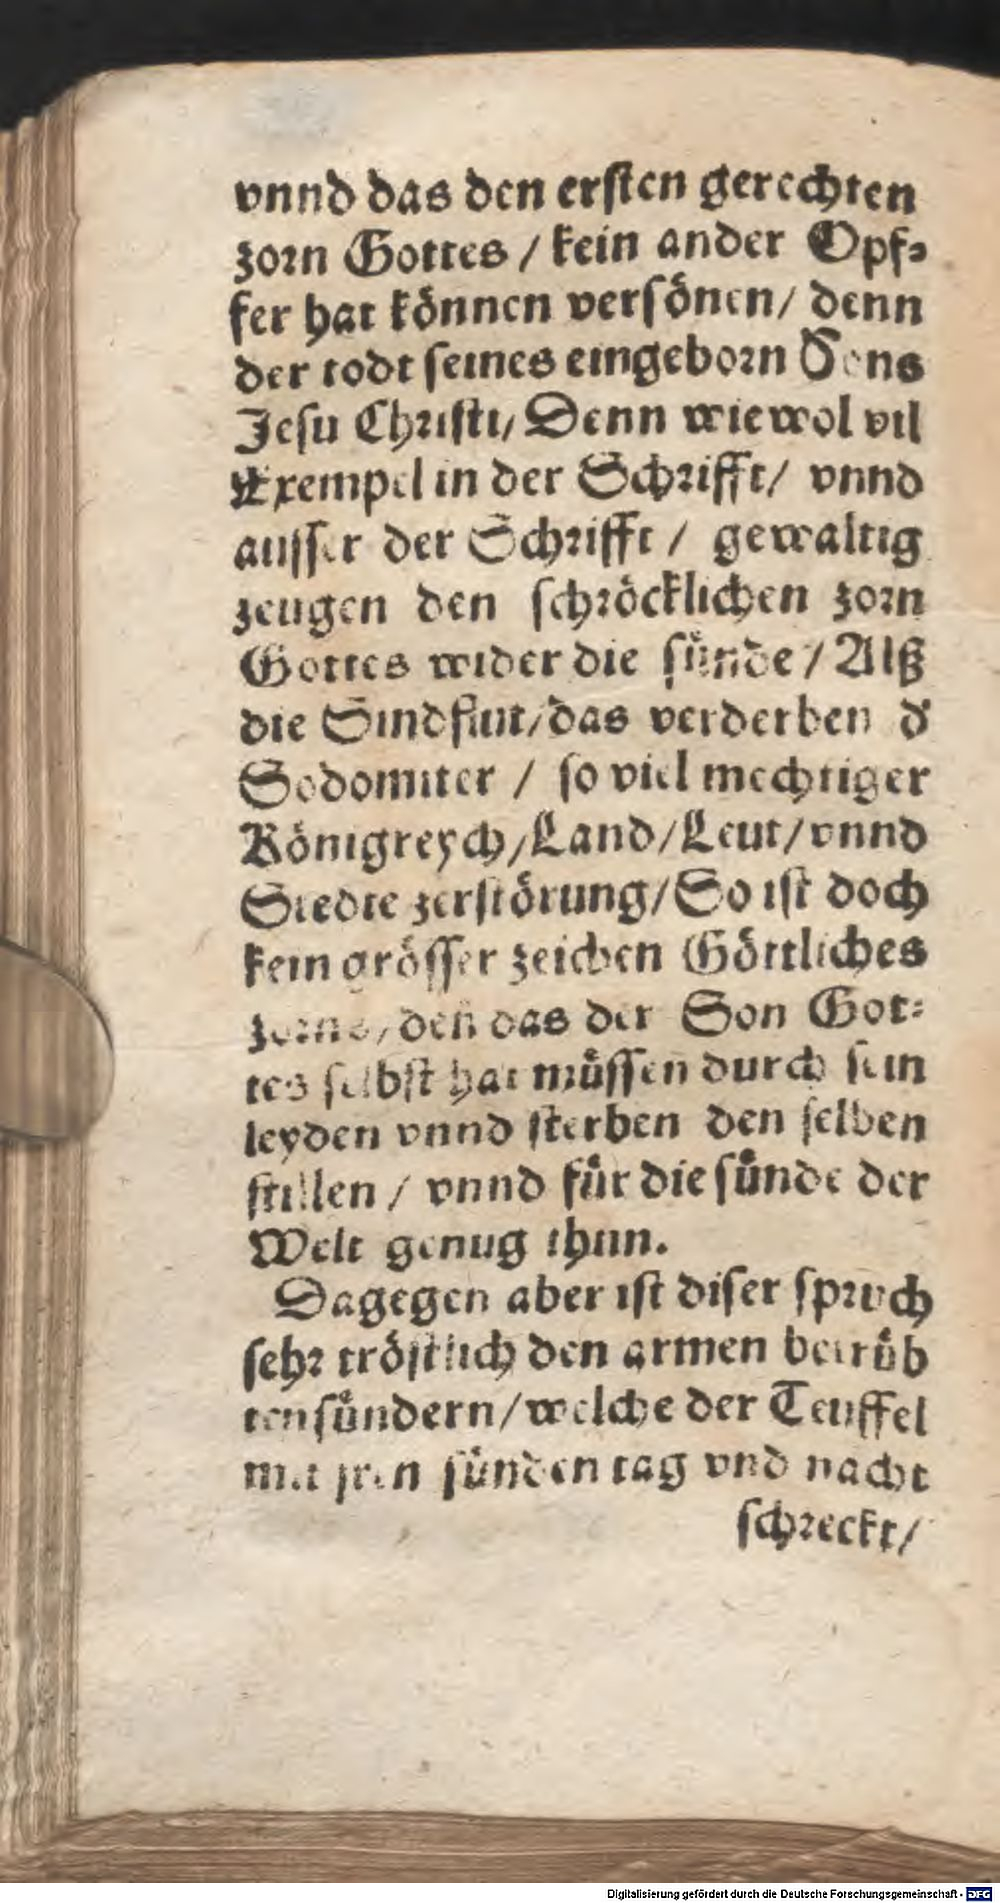 vnnd das den ersten gerechten
zorn Gottes / kein ander Opf⸗
fer hat können versönen / denn
der todt seines eingeborn Sons
Jesu Christi / Denn wiewol vil
Exempel in der Schrifft / vnnd
ausser der Schrifft / gewaltig
zeugen den schröcklichen zorn
Gottes wider die sünde / Alß
die Sindflut / das verderben d'
Sodomiter / so viel mechtiger
Königreych / Land / Leut / vnnd
Stedte zerstörung / So ist doch
kein grösser zeichen Göttliches
zorns / deñ das der Son Got⸗
tes selbst hat müssen durch sein
leyden vnnd sterben den selben
stillen / vnnd für die sünde der
Welt genug thun.
Dagegen aber ist diser spruch
sehr tröstlich den armen betrüb
ten sündern / welche der Teuffel
mit jren sünden tag vnd nacht
schreckt /
Digitalisierung gefördert durch die Deutsche Forschungsgemeinschaft - DFG